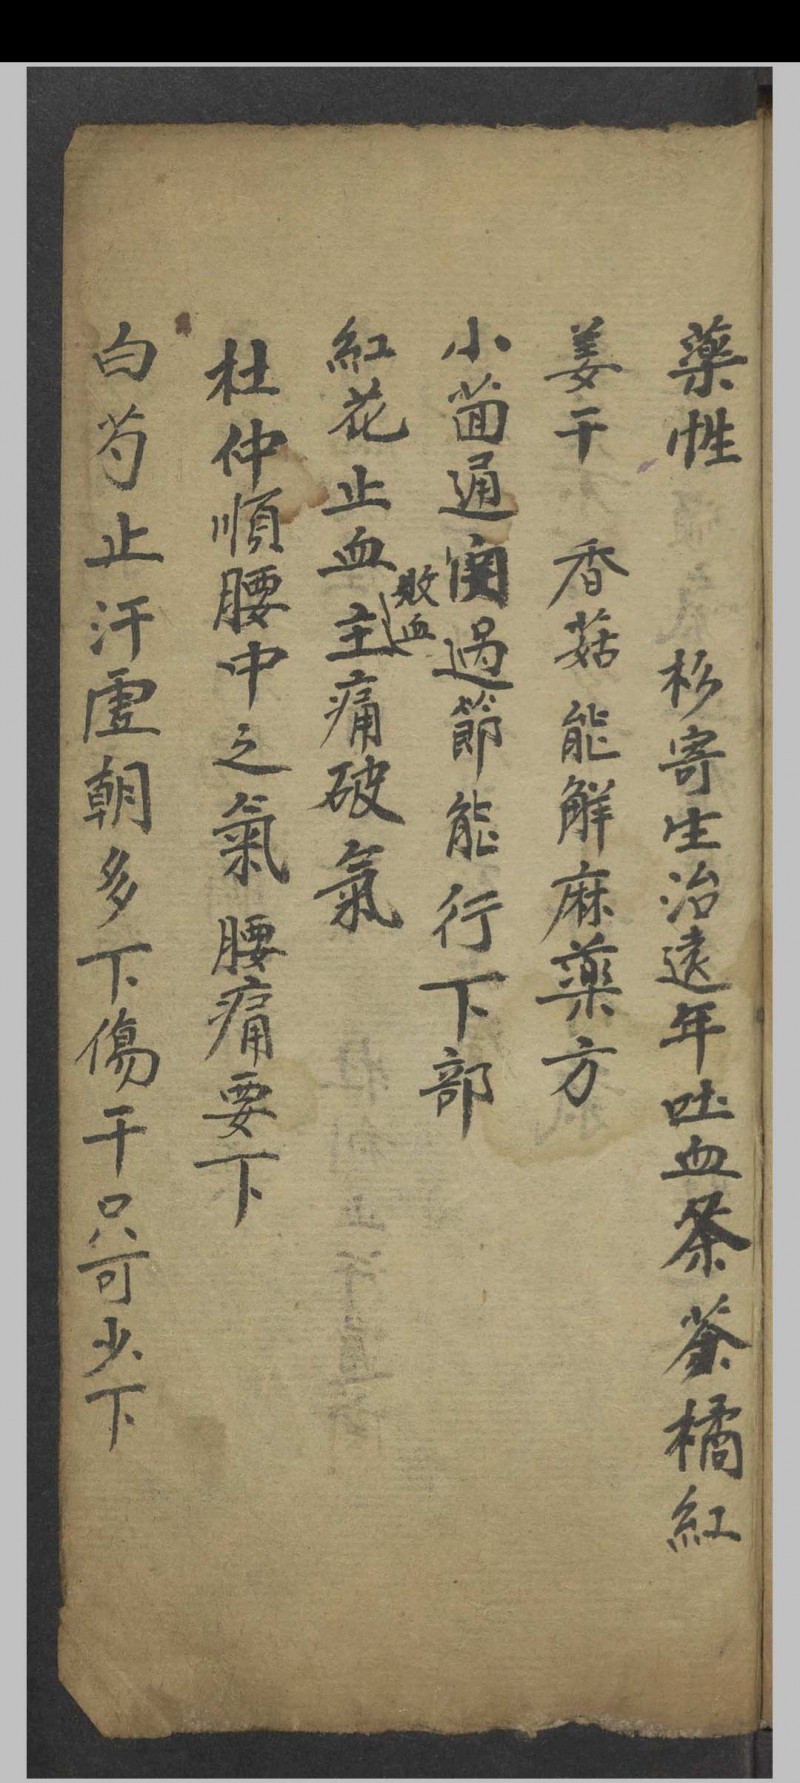 藥性　杉寄生治遠年吐血茶荼橘紅
姜干　香菇能解麻藥方
小茴通関過節能行下部
紅花止血主痛破氣
敗血
杜仲順腰中之氣腰痛要下
白芍止汗虛朝多下傷干只可少下